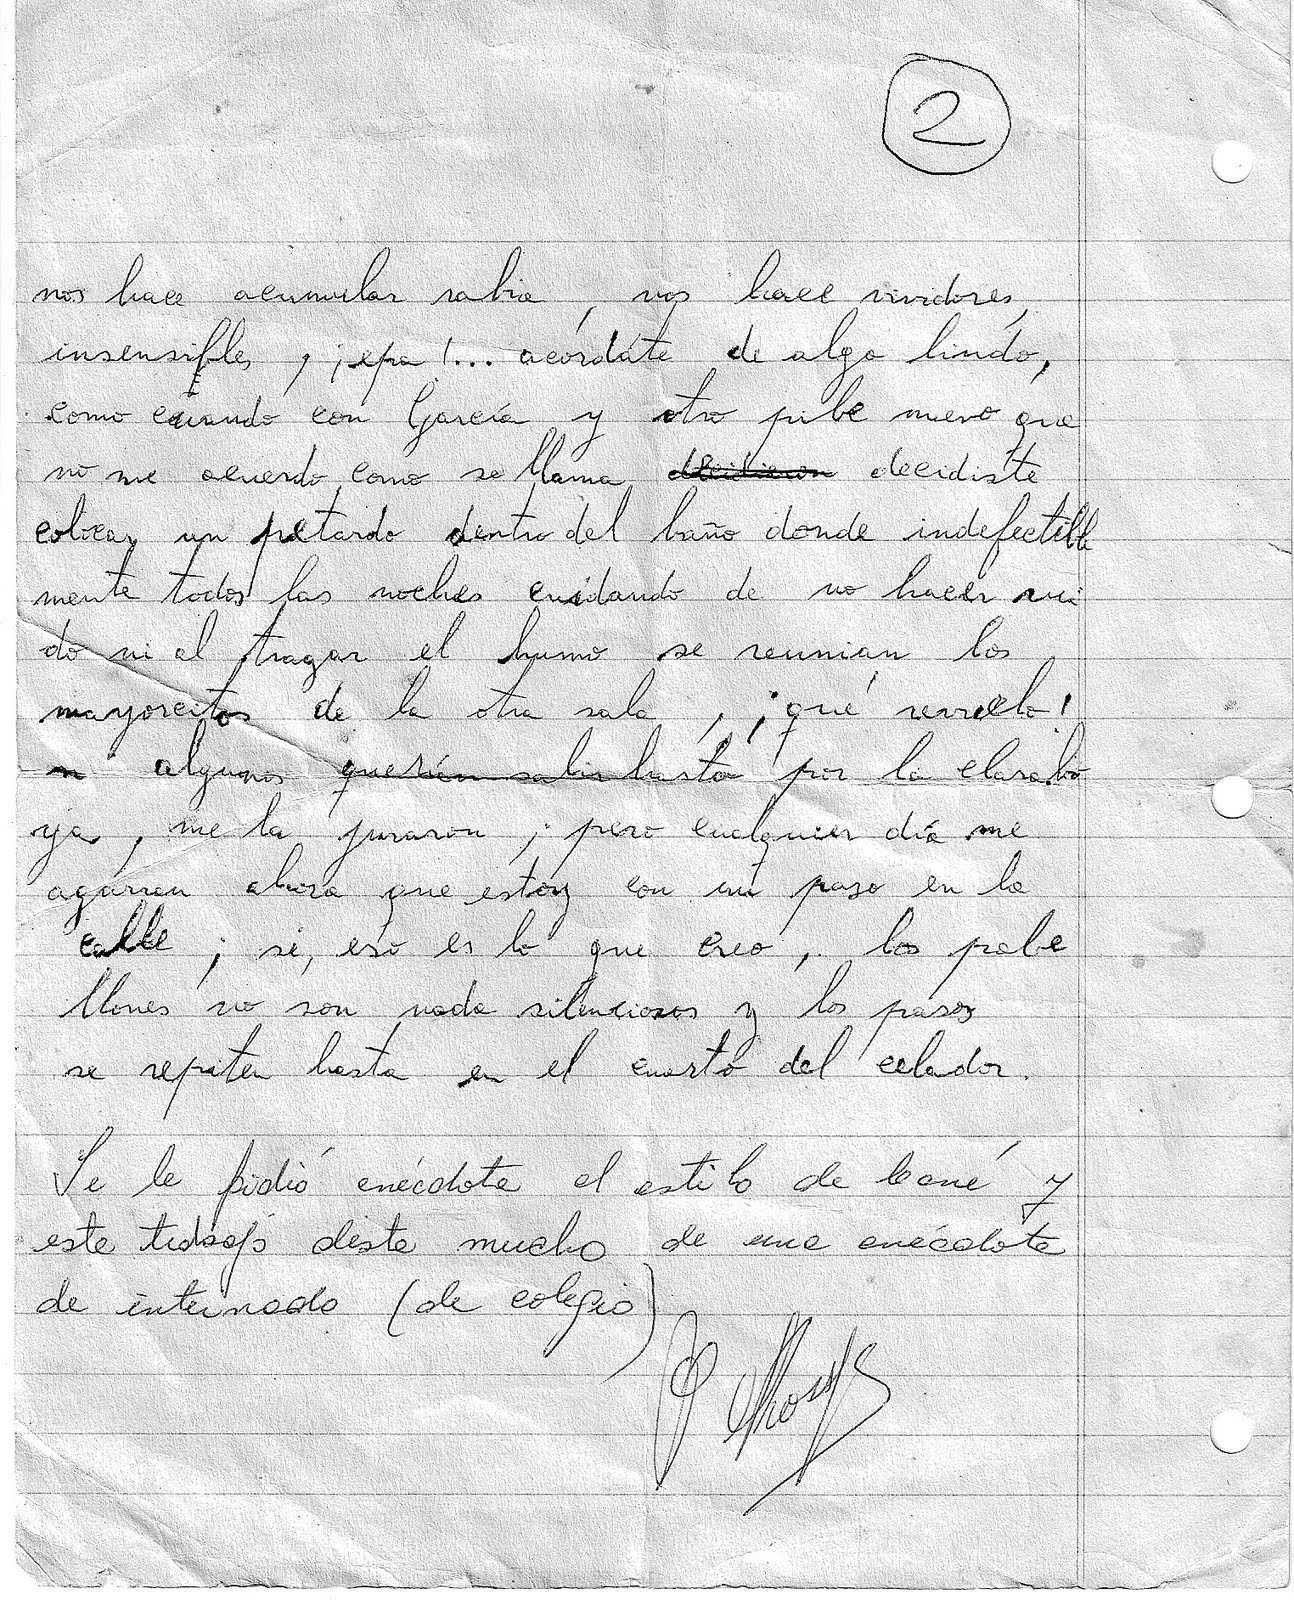 2
nos hace acumular rabia, nos hace vividores,
insensibles, ¡epa!... acórdate de algo lindo,
como cuando con García y otro pibe nuevo que
no me acuerdo como se llama decidieron decidiste
colocar un petardo dentro del baño donde indefectible
mente todos las noches cuidando de no hacer rui
do ni al tragar el humo se reunian los
mayorcitos de la otra sala, ¡qué revuelo!
algunos querían salir hasta por la clarabo
ya, me la juraron; pero cualquier día me
agarran ahora que estoy con un paso en la
calle; sí, eso es lo que creo, los pabe
llones no son nada silenciosos y los pasos
se repiten hasta en el cuarto del celador.
Se le pidió anécdota al estilo de Cané y
este trabajo dista mucho de una anécdota
de internado (de colegio)